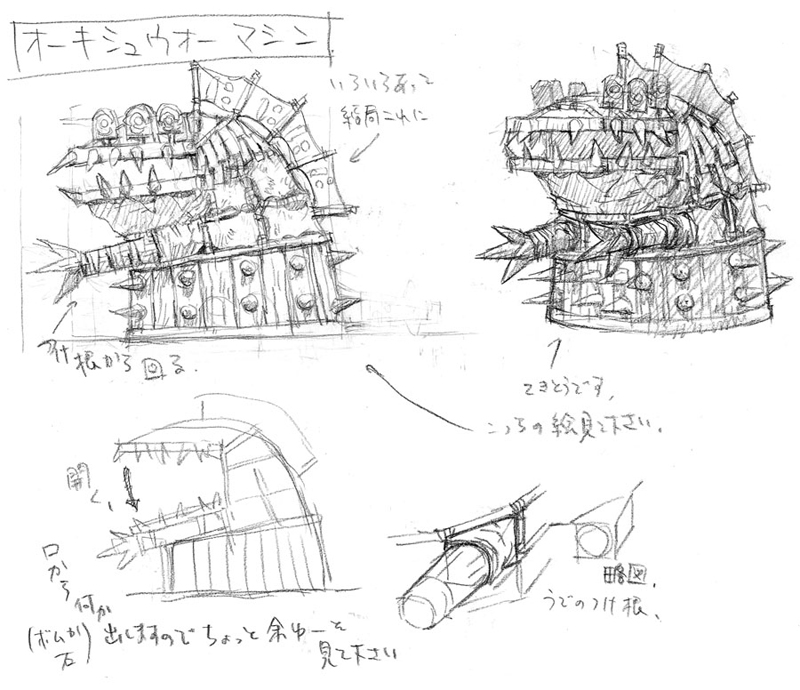 オーキシュウォーマシン
いろいろあって
結局これに
付根から回る。
てきとうです。
こっちの絵見て下さい。
開く。
口から
何か
(ボムか
石)
出しますのでちょっと余ゆーを
見て下さい
略図。
うでのつけ根。